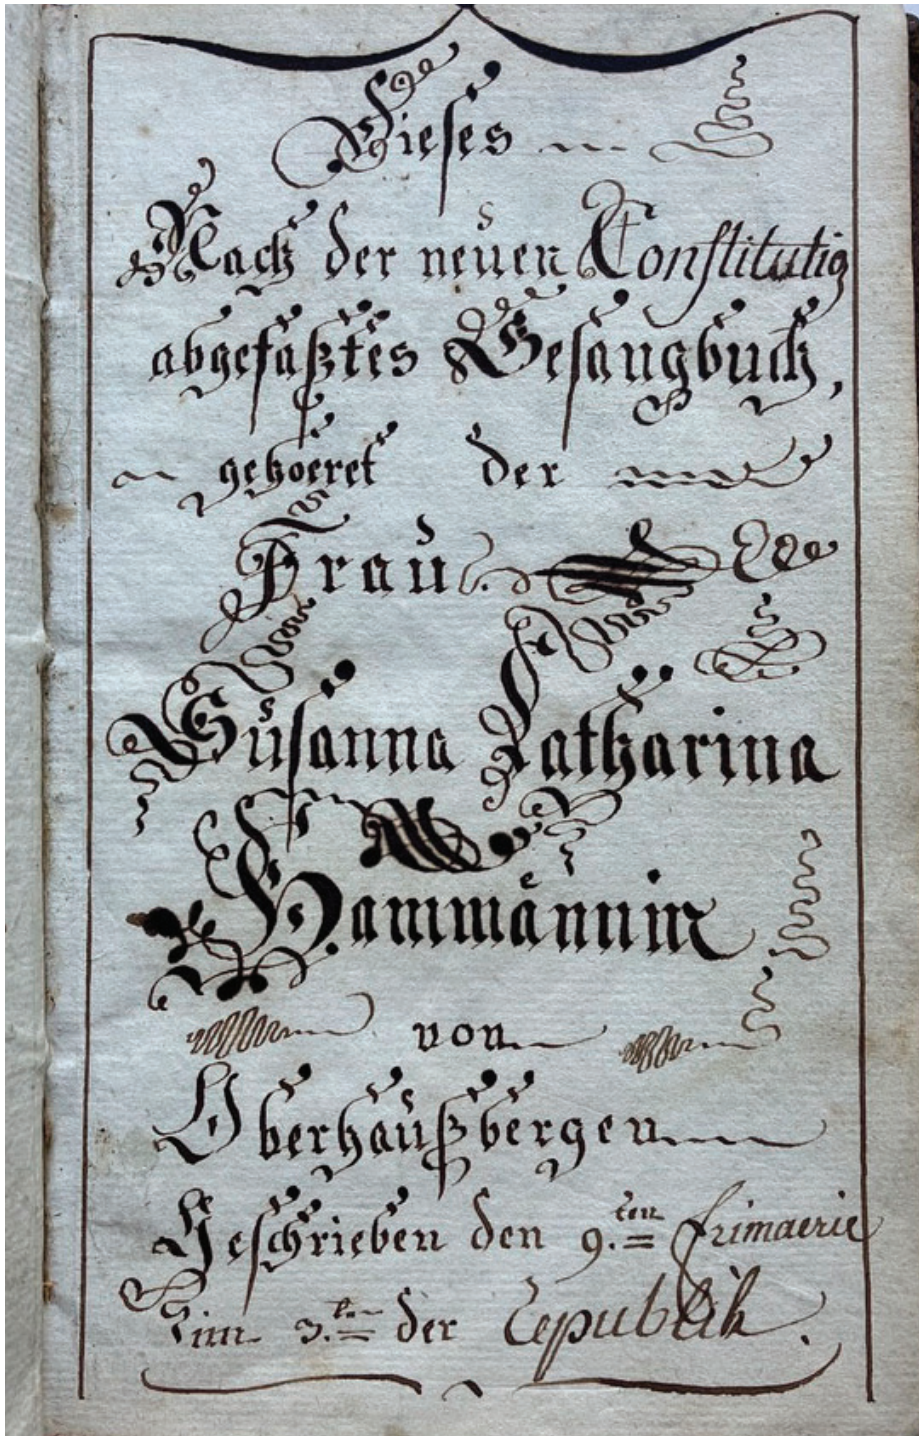 Dieses
Nach der neuen Constitution
abgefaßtes Gesangbuch,
gehoeret der
Frau
Susanna Catharina
Hammännin
von
Oberhaußbergen
Geschrieben den 9.ten frimaerie
im 3.ten der Republik.